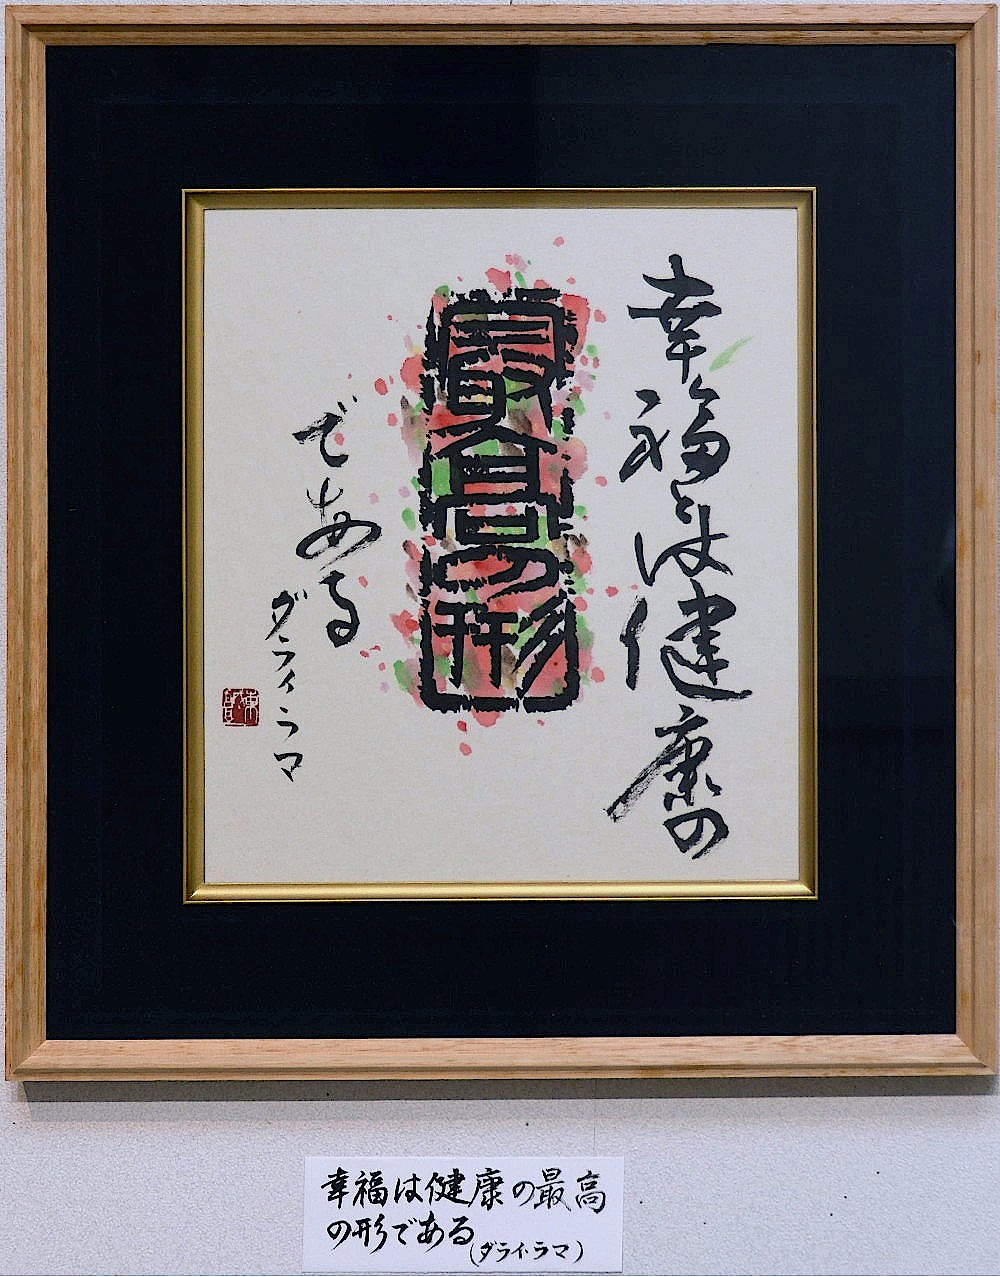 幸福は健康の
最高の形
である
ダライ・ラマ
幸福は健康の最高
の形である
(ダライ・ラマ)